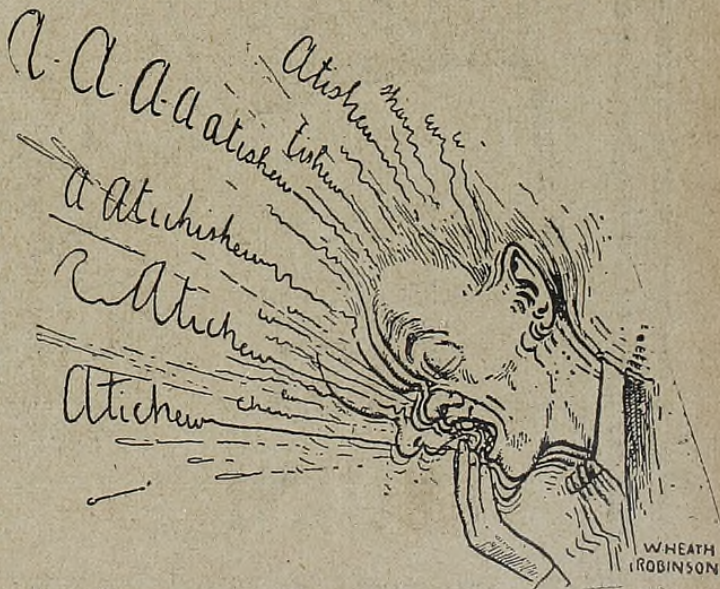 A. A. A. A atishew
Atishew
shew
tishew
A Atichishew
A Atichew
Atichew
chew
W. HEATH
ROBINSON